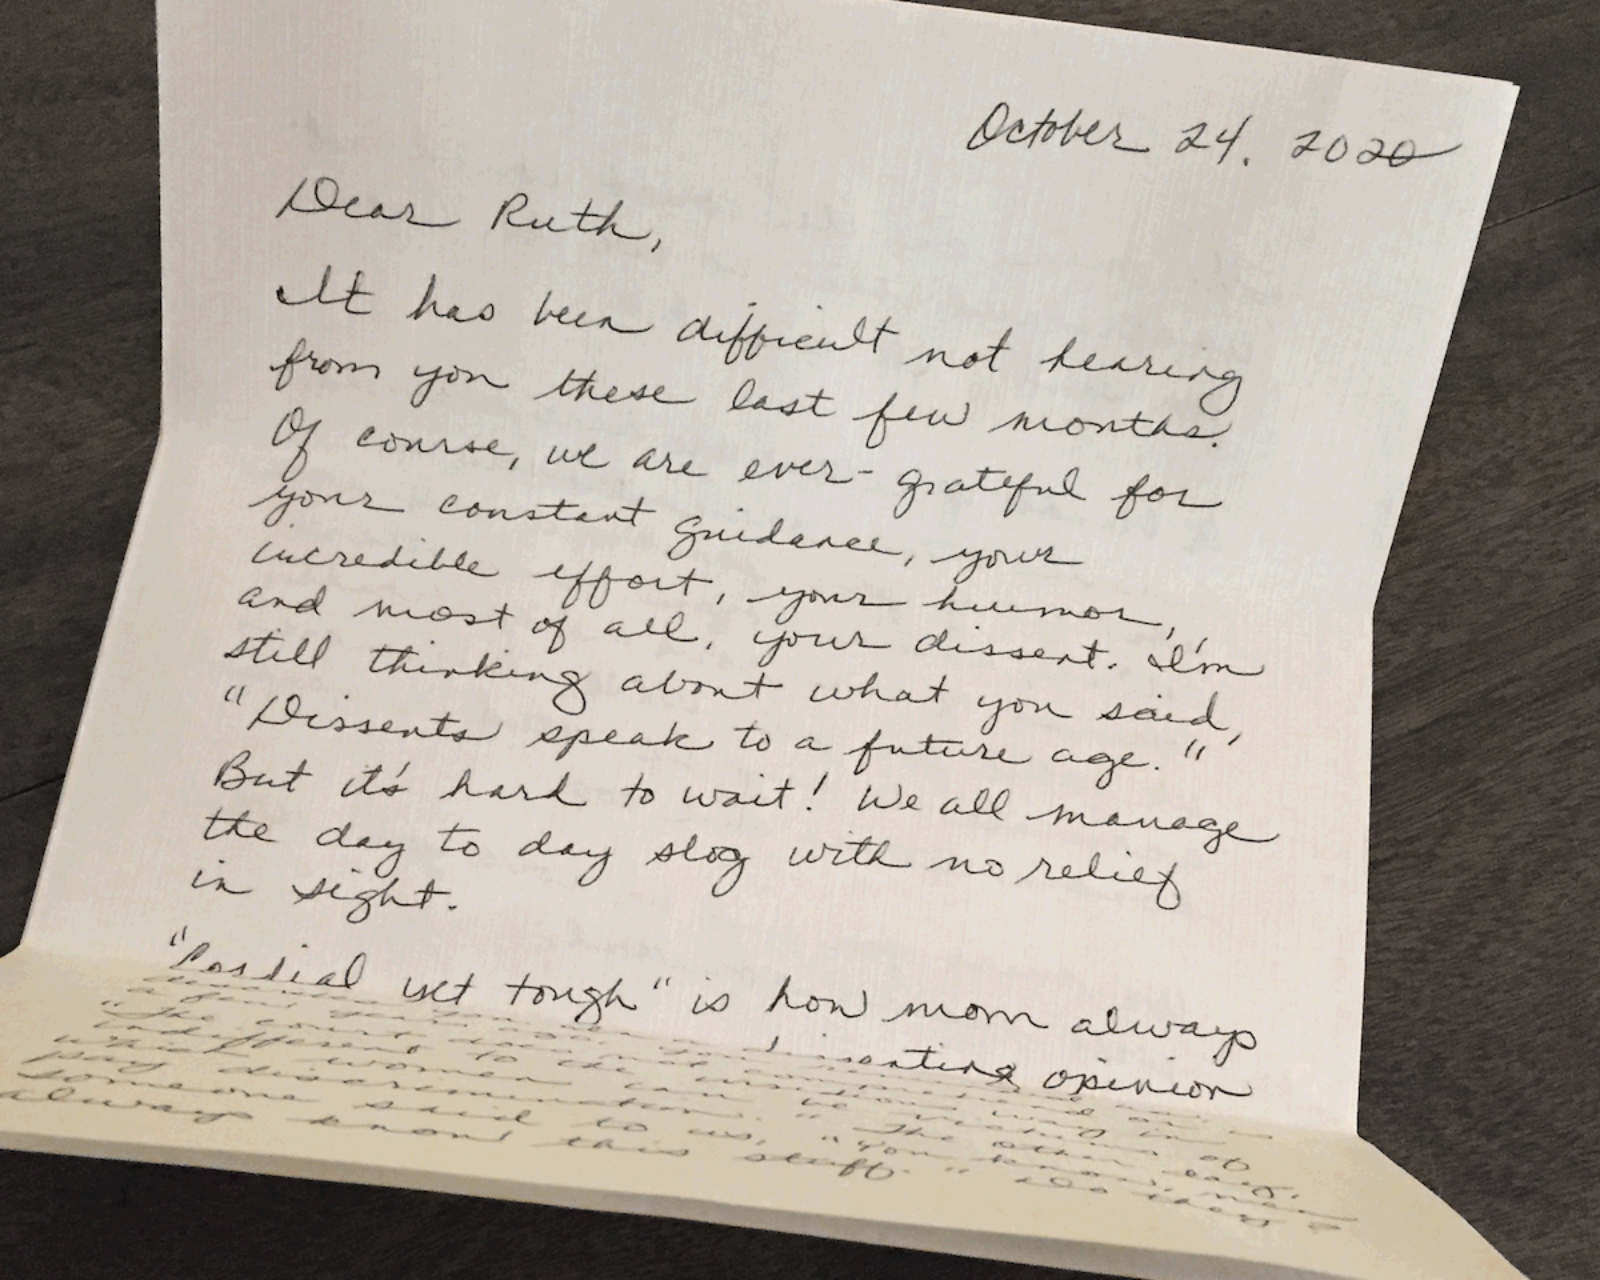 October 24, 2020
Dear Ruth,
It has been difficult not hearing
from you these last few months.
Of course, we are ever-grateful for
your constant guidance, your
incredible effort, your humor,
and most of all, your dissent. I'm
still thinking about what you said,
"Dissents speak to a future age."
But it's hard to wait! We all manage
the day to day slog with no relief
in sight.
"Cordial yet tough" is how mom always
dissenting opinion
"The court
indifferent to the insidious way in
which women can be victims of
pay discrimination." The other day,
someone said to us, "You know, men
always know this stuff." Do they